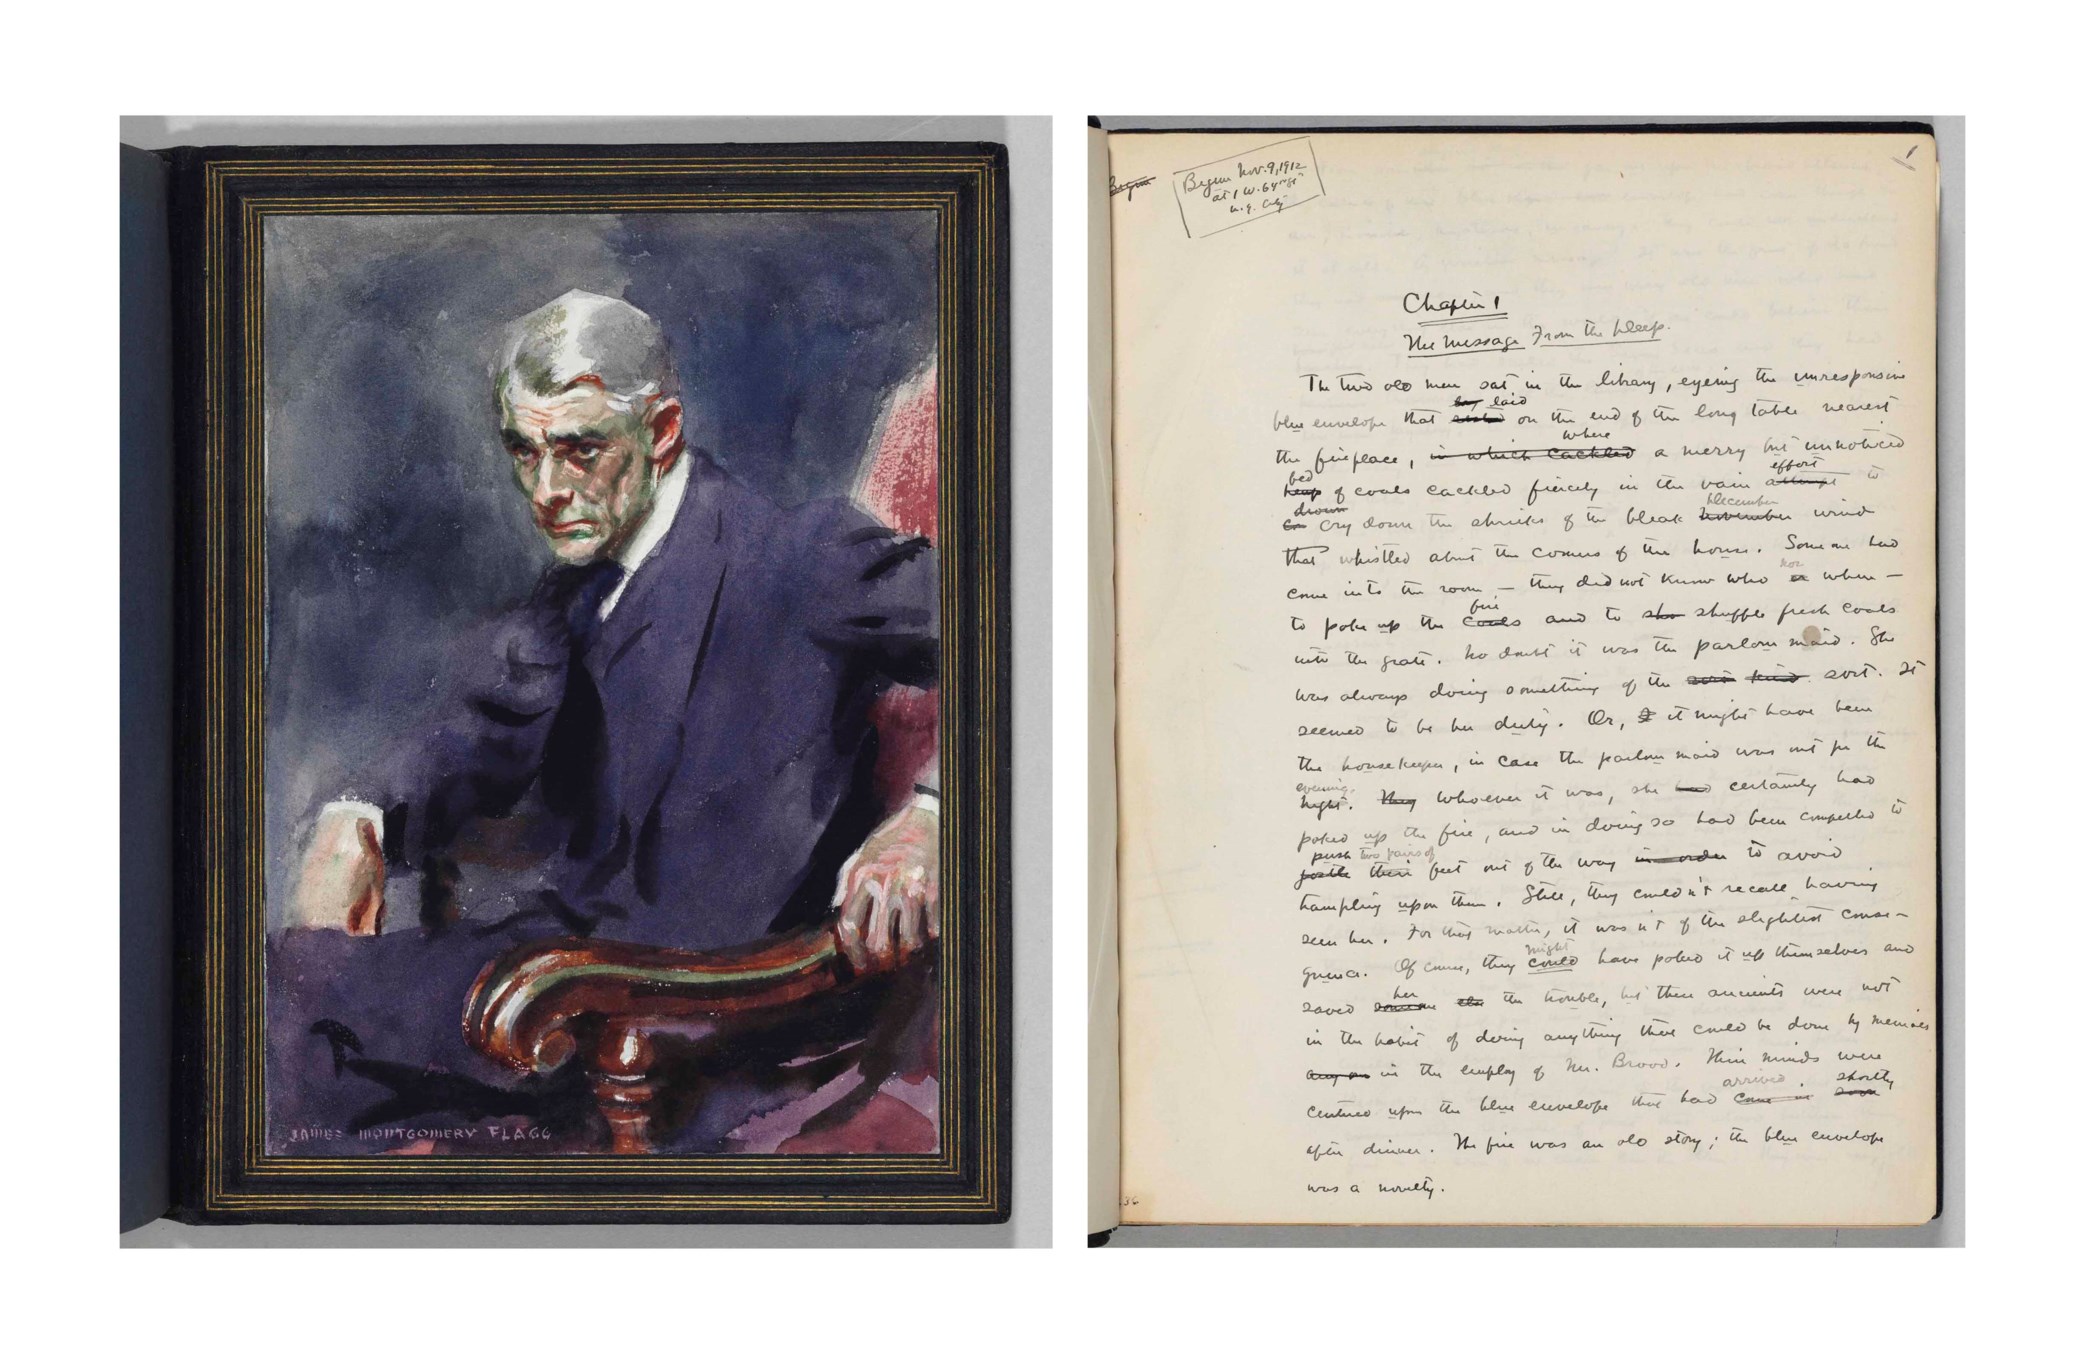 JAMES MONTGOMERY FLAGG
Begun
Begun Nov. 9, 1912
at 1 W. 64th St
N.Y. City
1
Chapter 1
The Message From the Deep.
The two old men sat in the library, eyeing the unresponsive
lay laid
blue envelope that rested on the end of the long table nearest
where
the fireplace, in which cackled a merry but unnoticed
bed effort
heap of coals cackled fiercely in the vain attempt to
drown December
cry down the shrieks of the bleak November wind
that whistled about the corners of the house. Some one had
nor
come into the room, — they did not know who or when —
fire
to poke up the coals and to sho shuffle fresh coals
into the grate. No doubt it was the parlour maid. She
was always doing something of the sort kind sort. It
seemed to be her duty. Or, it might have been
the housekeeper, in case the parlour maid was out for the
evening.
night. They Whoever it was, she had certainly had
poked up the fire, and in doing so had been compelled to
push two pairs of
jostle their feet out of the way in order to avoid
trampling upon them. Still, they couldn't recall having
seen her. For that matter, it wasn't of the slightest conse-
might
quence. Of course, they could have poked it up themselves and
her
saved someone else the trouble, but these ancients were not
in the habit of doing anything that could be done by menials
any one in the employ of Mr. Brood. Their minds were
arrived shortly
centred upon the blue envelope that had come in soon
after dinner. The fire was an old story; the blue envelope
was a novelty.
36